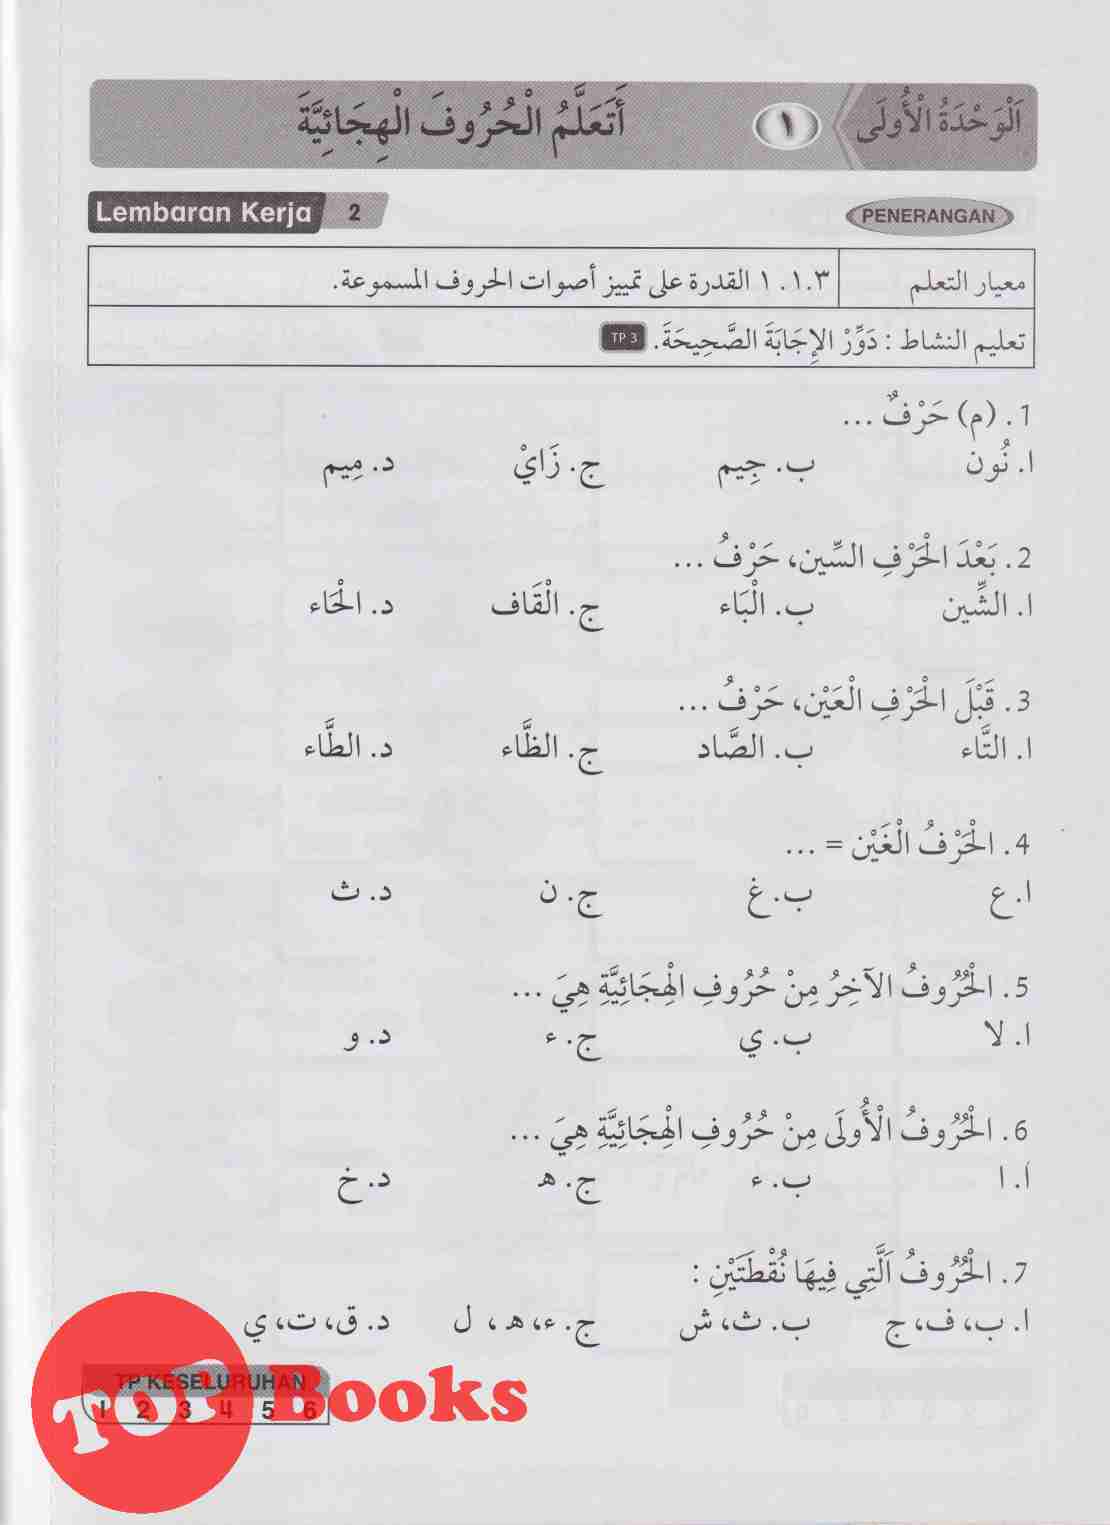 اَلْوَحْدَةُ الْأُولَى ١ أَتَعَلَّمُ الْحُرُوفَ الْهِجَائِيَّةَ
PENERANGAN Lembaran Kerja 2
معيار التعلم ١.١.٣ القدرة على تمييز أصوات الحروف المسموعة.
تعليم النشاط : دَوِّرْ الإِجَابَةَ الصَّحِيحَةَ. TP 3
1. (م) حَرْفٌ ...
ا. نُون ب. جِيم ج. زَايْ د. مِيم
2. بَعْدَ الْحَرْفِ السِّين، حَرْفُ ...
ا. الشِّين ب. الْبَاء ج. الْقَاف د. الْحَاء
3. قَبْلَ الْحَرْفِ الْعَيْن، حَرْفُ ...
ا. التَّاء ب. الصَّاد ج. الظَّاء د. الطَّاء
4. الْحَرْفُ الْغَيْن = ...
ا. ع ب. غ ج. ن د. ث
5. الْحُرُوفُ الآخِرُ مِنْ حُرُوفِ الْهِجَائِيَّةِ هِيَ ...
ا. لا ب. ي ج. ء د. و
6. الْحُرُوفُ الْأُولَى مِنْ حُرُوفِ الْهِجَائِيَّةِ هِيَ ...
ا. ا ب. ء ج. ه د. خ
7. الْحُرُوفُ اَلَّتِي فِيهَا نُقْطَتَيْنِ :
ا. ب، ف، ج ب. ث، ش ج. ء، ه، ل د. ق، ت، ي
TP KESELURUHAN
1 2 3 4 5 6
TOP Books